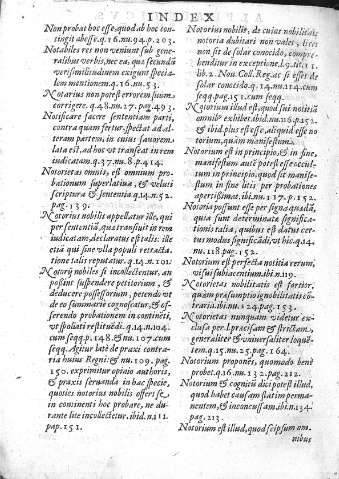 INDEX
Non probat hoc esse, quod ab hoc con
tingit abesse. q.16.nu.94. p.203.
Notabiles rei non veniunt sub gene
ralibus verbis, nec ea, quæ secundũ
verisimilitudinem exigunt specia
lem mentionem. q.16.nu.53.
Notarius non potest errorem suum
corrigere. q.48.nu.27. pag.493.
Notificare facere sententiam parti,
contra quam fertur, spectat ad al-
teram partem, in cuius fauorem
lata est, ad hoc vt transeat in rem
iudicatam. q.37.nu.8. p.414.
Notorietas omnis, est omnium pro
bationum superlatiua, & veluti
scriptura & sententia q.14.n.52.
pag.139.
Notorius nobilis appellatur ille, qui
per sententiã, quæ transiuit in rem
iudicatam, declaratus est talis: ille
etiã qui sine vlla populi retracta
tione talis reputatur. q.14.n.101.
Notorij nobiles si incollectentur, an
possint suspendere petitorium, &
deducere possessorium, petendo vt
de eo summariè cognoscatur, & of
ferendo probationem in continẽti,
vt spoliati restituãtur. q.14.n.104.
cum seqq. p.148. & nu.107. cum
seqq. Agitur latè de praxi contra
ria huius Regni: & nu.109. pag.
150. exprimitur opiniò authoris,
& praxis seruanda in hac specie,
quoties notorius nobilis offert se
in continenti hoc probare, ne du-
rante lite incollectetur. ibid. n.111.
pag.151.
Notorius nobilis, de cuius nobilitate
notoria dubitari non valet, licet
non sit de solar conocido, compre
henditur in exceptione. l.9. tit.11.
lib.2. Nou. Coll. Reg. ac si esset de
solar conocido. q.14.nu.114. cum
seqq. pag.151. cum seqq.
Notorium illud est, quod sui notitiã
omnibꝰ exhibet. ibid. nu.116. p.152.
& ibid. plus est esse, aliquid esse no
torium, quàm manifestum.
Notorium est in principio, & in fine,
manifestum autẽ potest esse occul-
tum in principio, quod sit manife-
stum in fine litis per probationes
apertissimas. ibid. nu.117. p.152.
Notoria possunt esse per signa quædã,
quia sunt determinata significa-
tionis talia, quibus est datus cer-
tus modus significãdi, vt hic. q.14.
nu.118. pag.152.
Notorium est perfecta notitia rerum,
visui subiacentium. ibi. n.119.
Notorietas nobilitatis est fortior,
quàm præsumptio ignobilitatis cõ-
traria. ibi. nu.124. pag.153.
Notorietas nunquam videtur ex-
clusa per l. præcisam & strictam,
generaliter & vniuersaliter loquẽ-
tem. q.15.nu.25. pag.164.
Notorium proponẽs, quomodo benè
probet. q.16. nu.132. pag.212.
Notorium & cognitũ dici potest illud,
quod habet causam statim perma-
nentem, & inconcussam. ibi. n.134.
pag.213.
Notorium est illud, quod seipsum om-
nibus